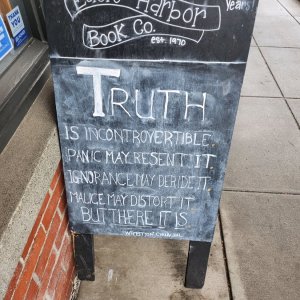 Harbor
Book Co.
est. 1970
Years
TRUTH
IS INCONTROVERTIBLE
PANIC MAY RESENT IT
IGNORANCE MAY DERIDE IT
MALICE MAY DISTORT IT
BUT THERE IT IS